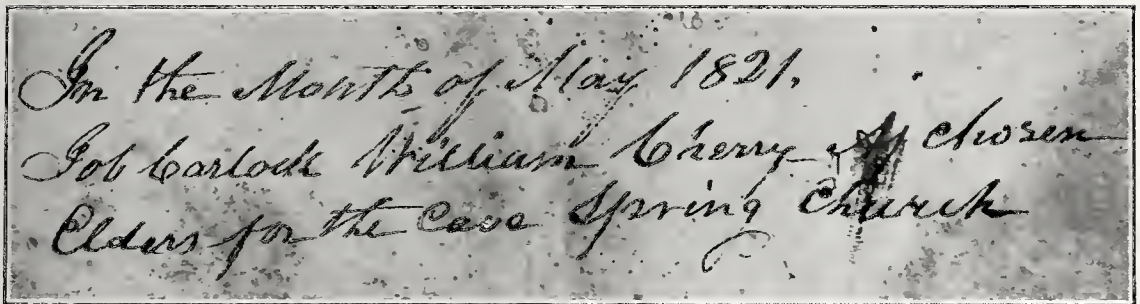 In the Month of May 1821.
Job Carlock William Cherry chosen
Elders for the Cave Spring Church